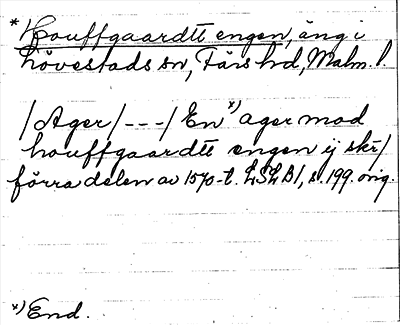 * Houffgaardtt engen, äng i
hövestads sn, Färs hd, Malm. l.
/Ager/---/ En *) ager mod
houffgaardtt engen ij skr/
förra delen av 1570-t. LSLB1, s. 199. orig.
*) End.